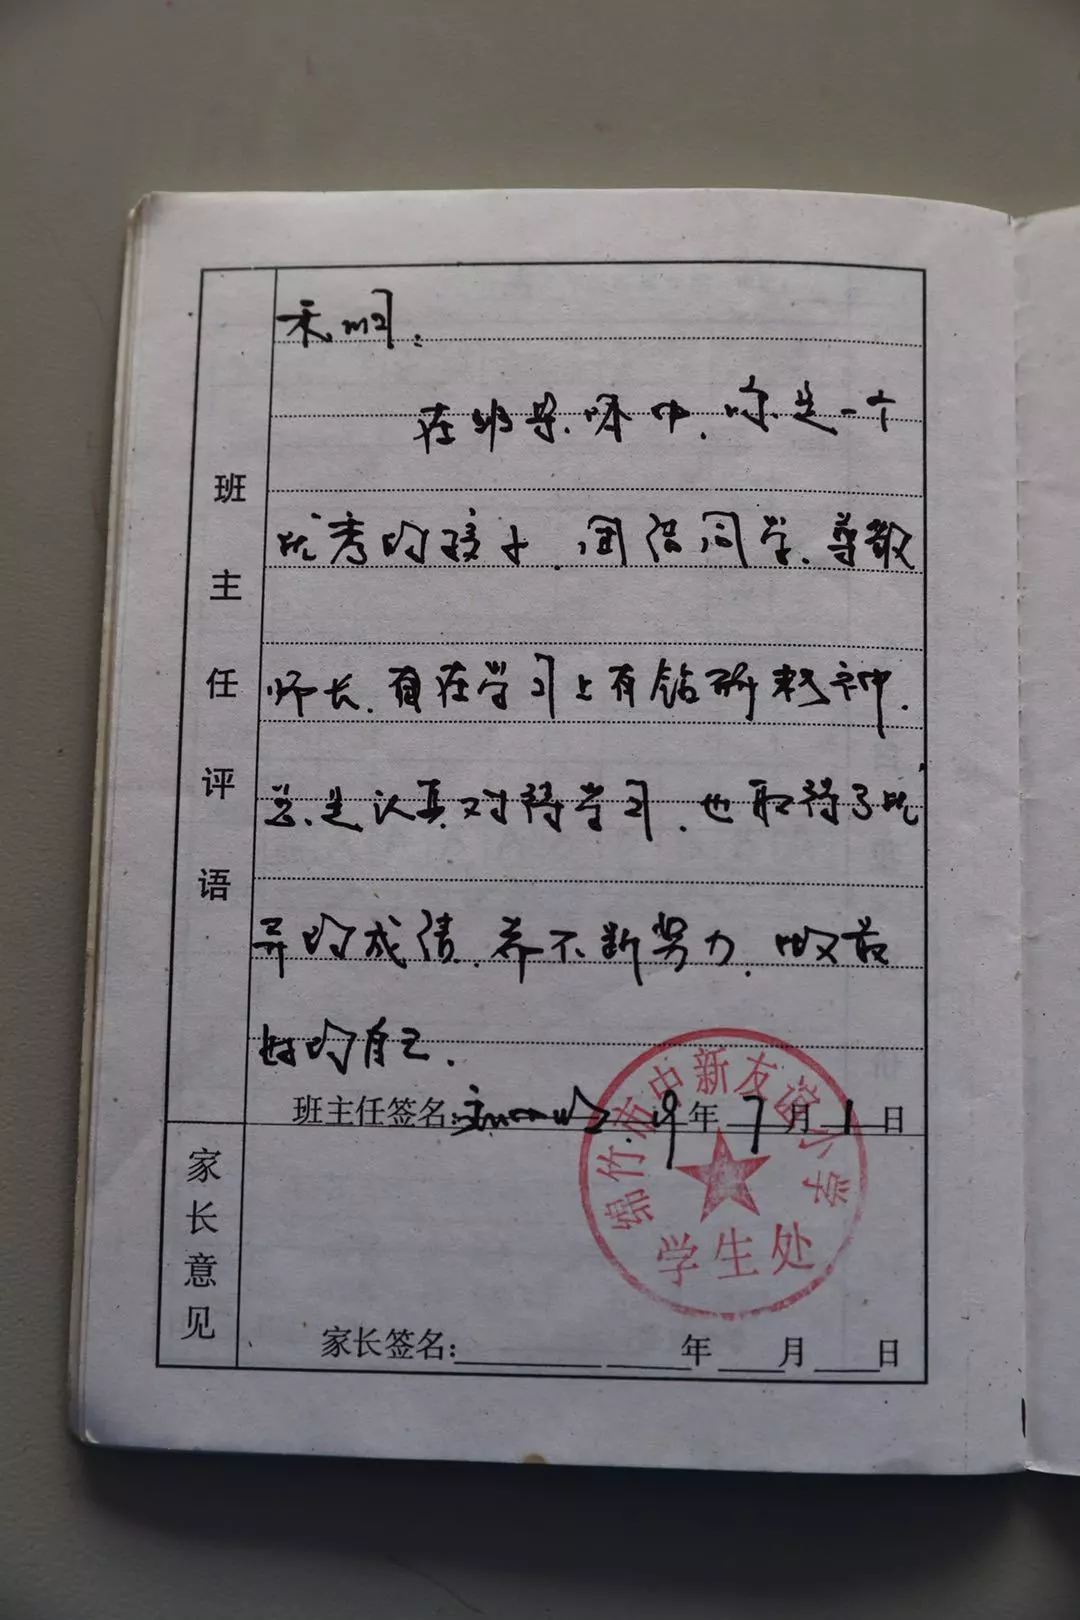 在班集体中,你是一个
优秀的孩子.团结同学、尊敬
师长,有在学习上有钻研精神,
总是认真对待学习,也取得了优
异的成绩.希不断努力,做最
好的自己.
班主任签名: 19年7月1日
班主任评语
家长意见
家长签名: 年 月 日
绵竹市中新友谊小学
学生处